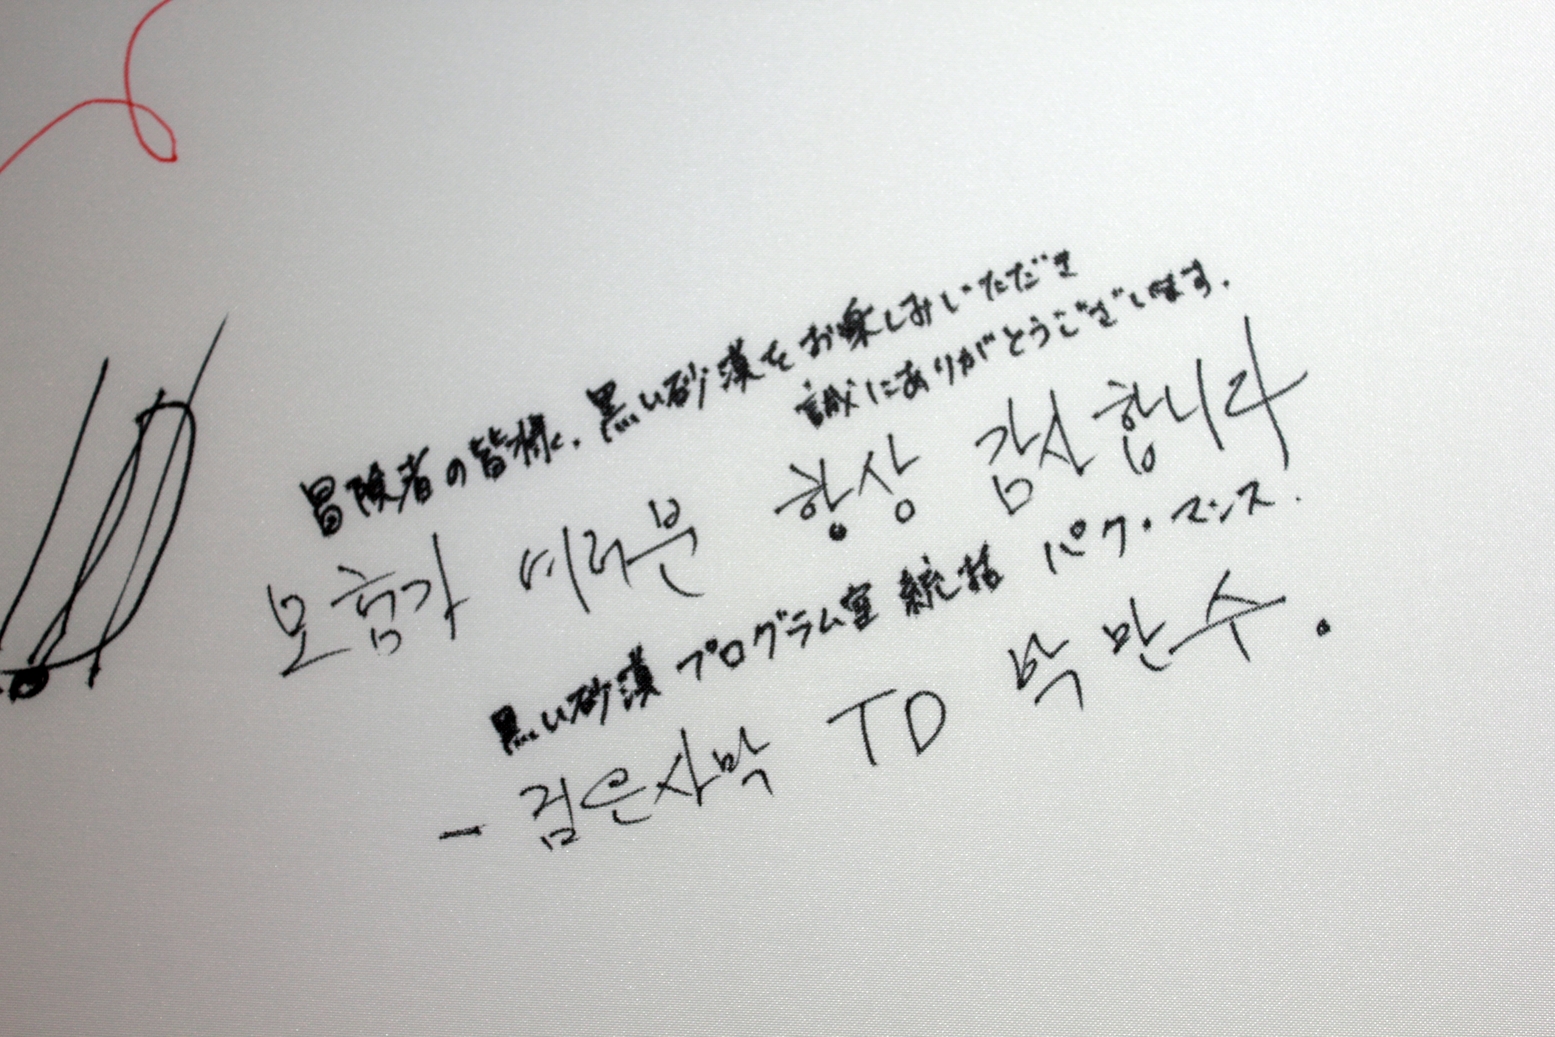 冒険者の皆様、黒い砂漠をお楽しみいただき
誠にありがとうございます.
모험가 여러분 항상 감사합니다
黒い砂漠 プログラム室 統括 パク・マンス.
- 검은사막 TD 박만수.